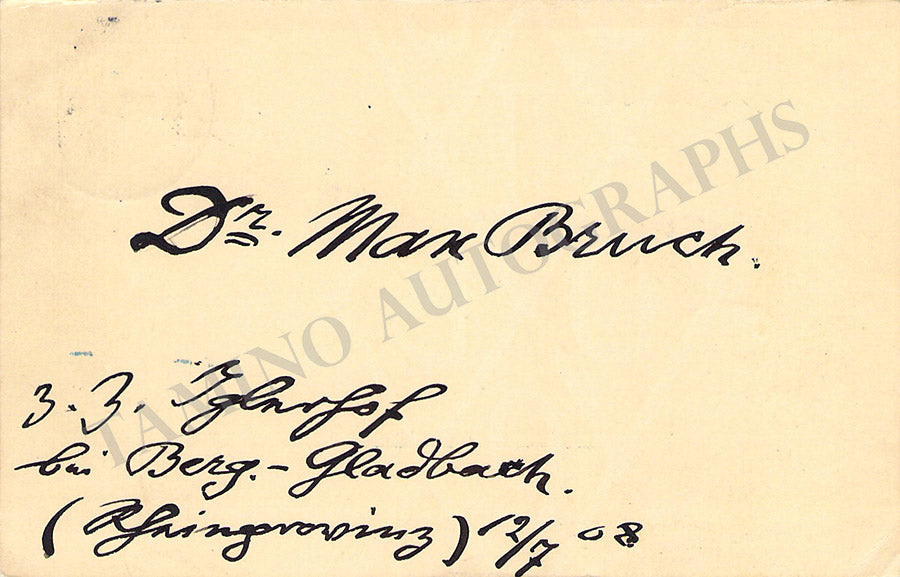 Dr. Max Bruch.
z. Z. Iglerhof
bei Berg.-Gladbach.
(Rheinprovinz) 12/7 08
TAMINO AUTOGRAPHS